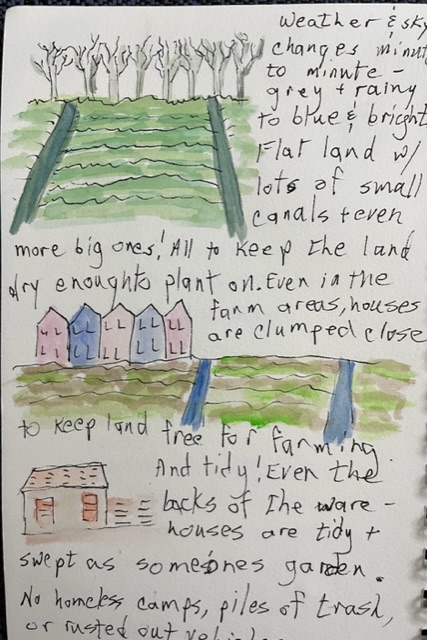 Weather & sky
changes minut
to minute -
grey + rainy
to blue & bright
Flat land w/
lots of small
canals + even
more big ones! All to keep the land
dry enought to plant on. Even in the
farm areas, houses
are clumped close
to keep land free for farming
And tidy! Even the
backs of the ware-
houses are tidy +
swept as someones garden.
No homeless camps, piles of trash,
or rusted out